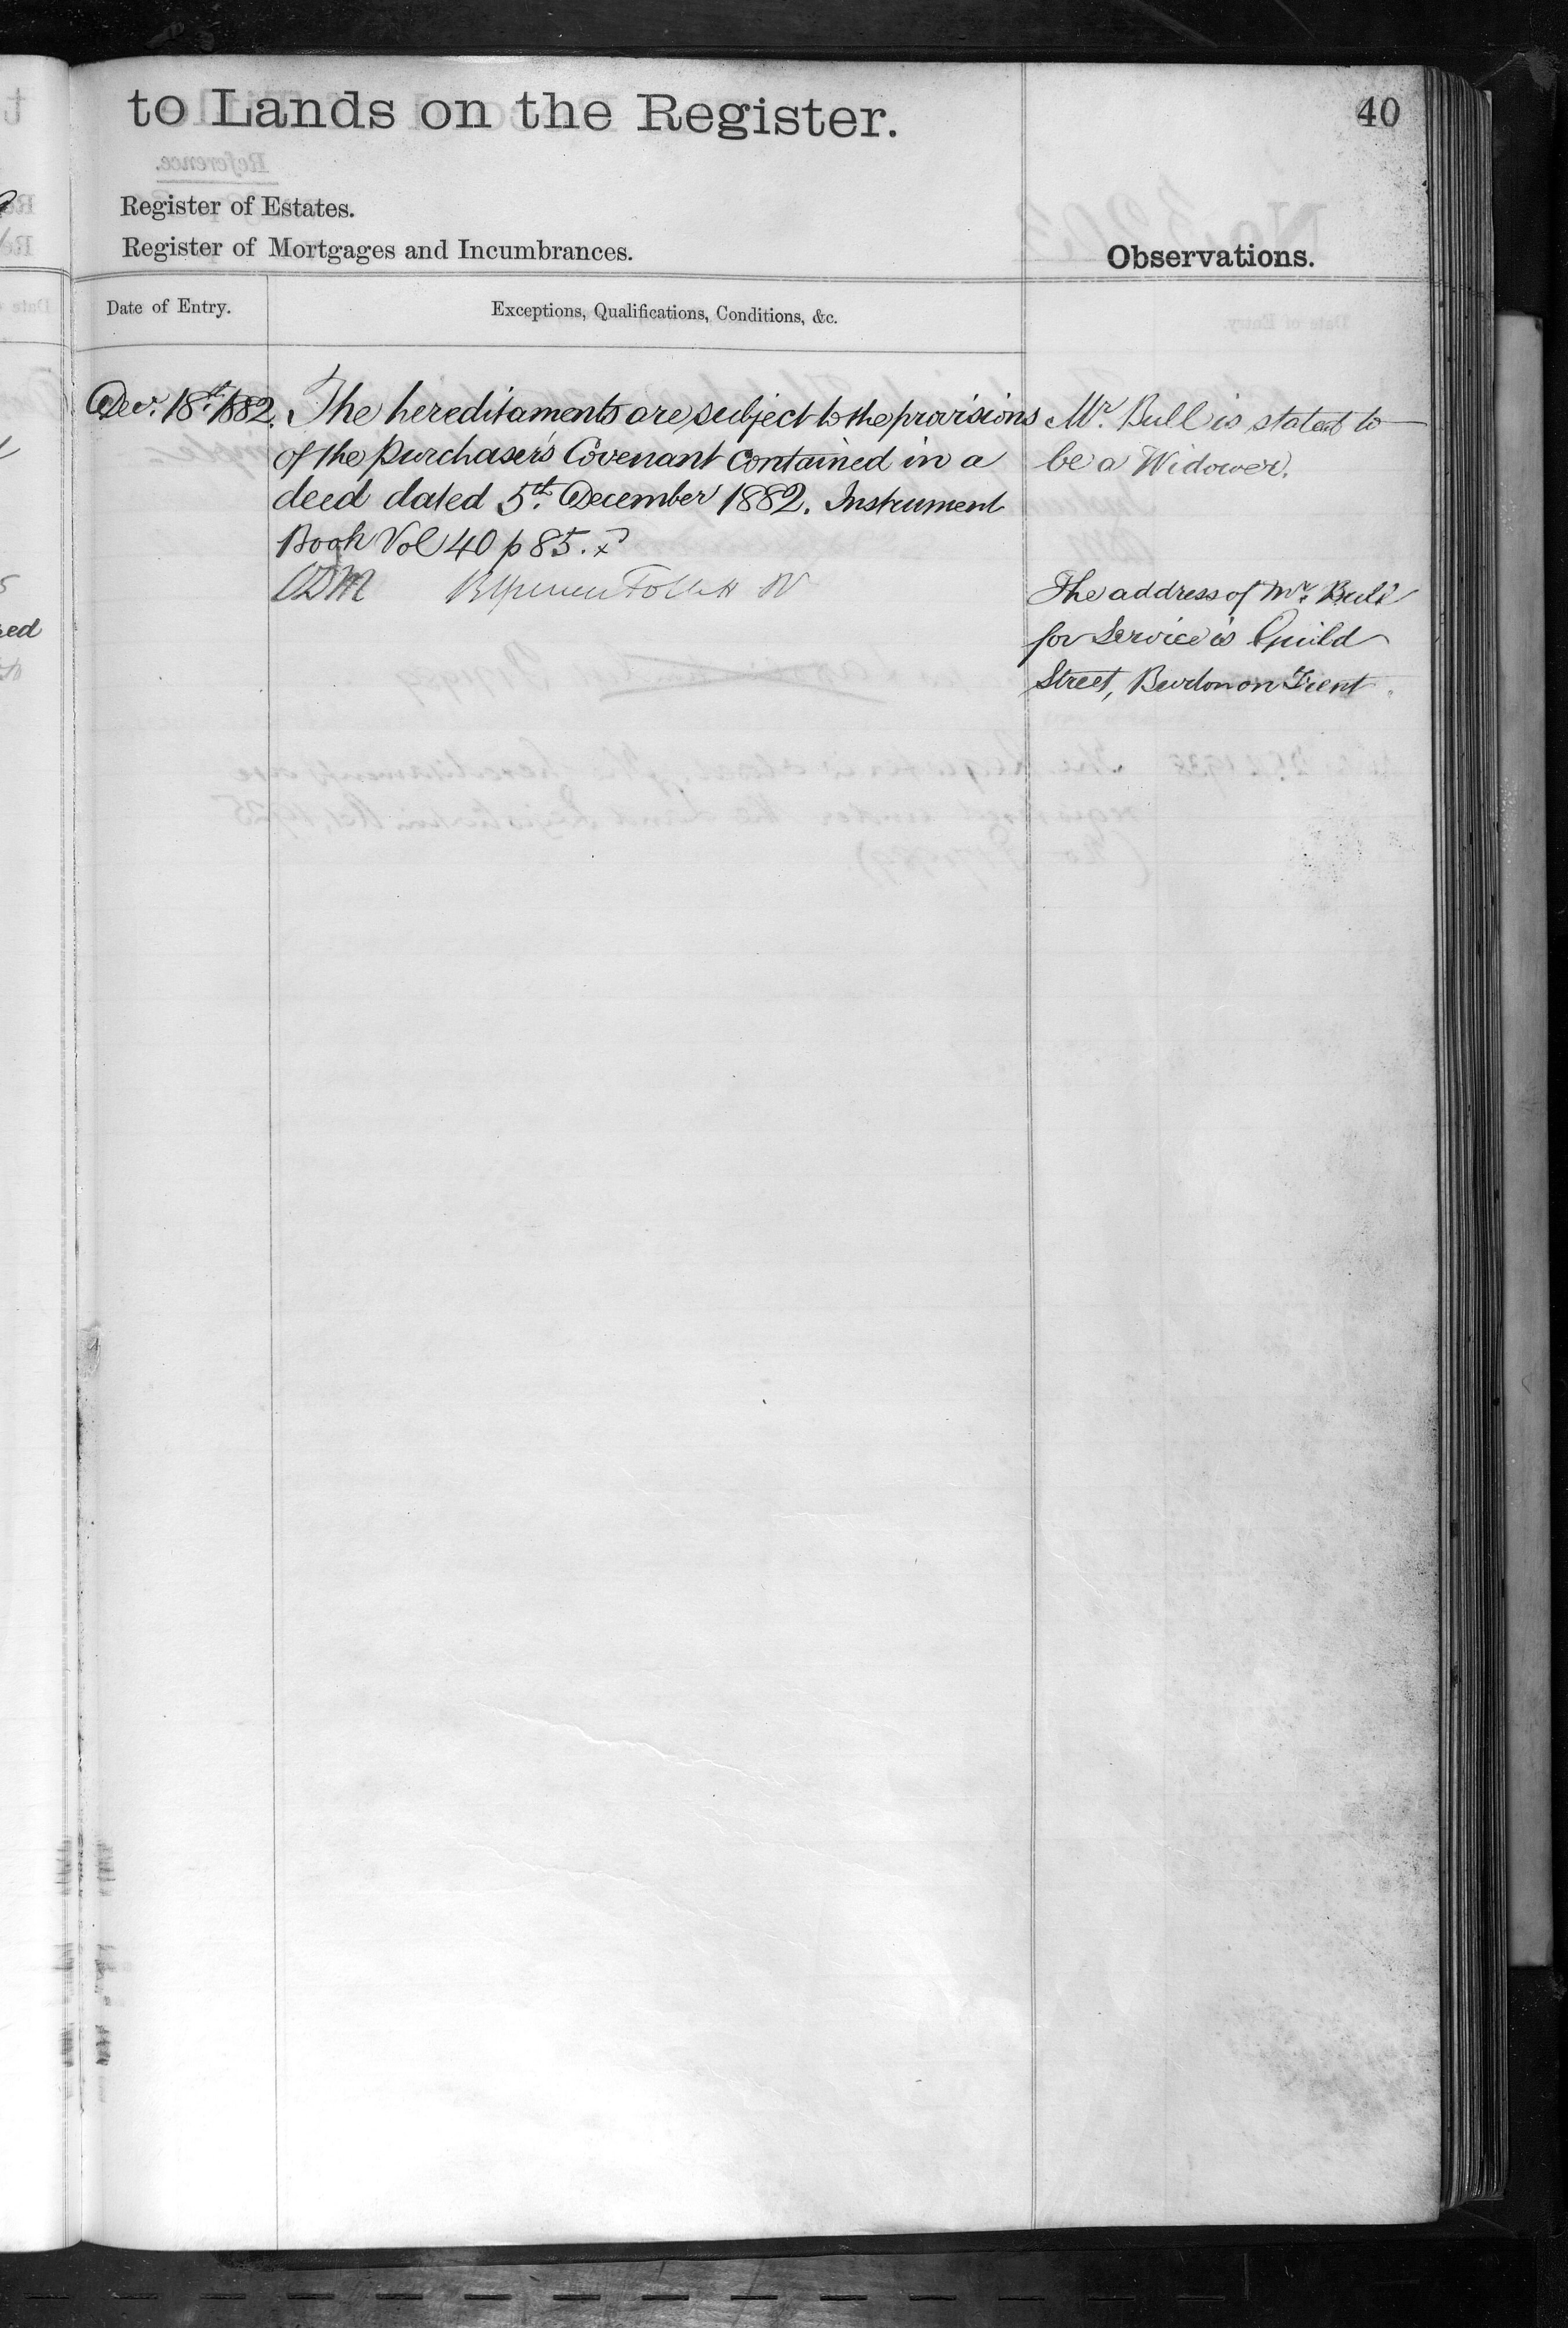 to Lands on the Register.
40
Register of Estates.
Register of Mortgages and Incumbrances.
Observations.
Date of Entry.
Exceptions, Qualifications, Conditions, &c.
Decr. 18th. 1882.
The hereditaments are subject to the provisions
of the purchaser's Covenant contained in a
deed dated 5th. December 1882. Instrument
Book Vol 40 p 85.
Mr. Bull is stated to
be a Widower.
The address of Mr. Bull
for Service is Guild
Street, Burton on Trent.